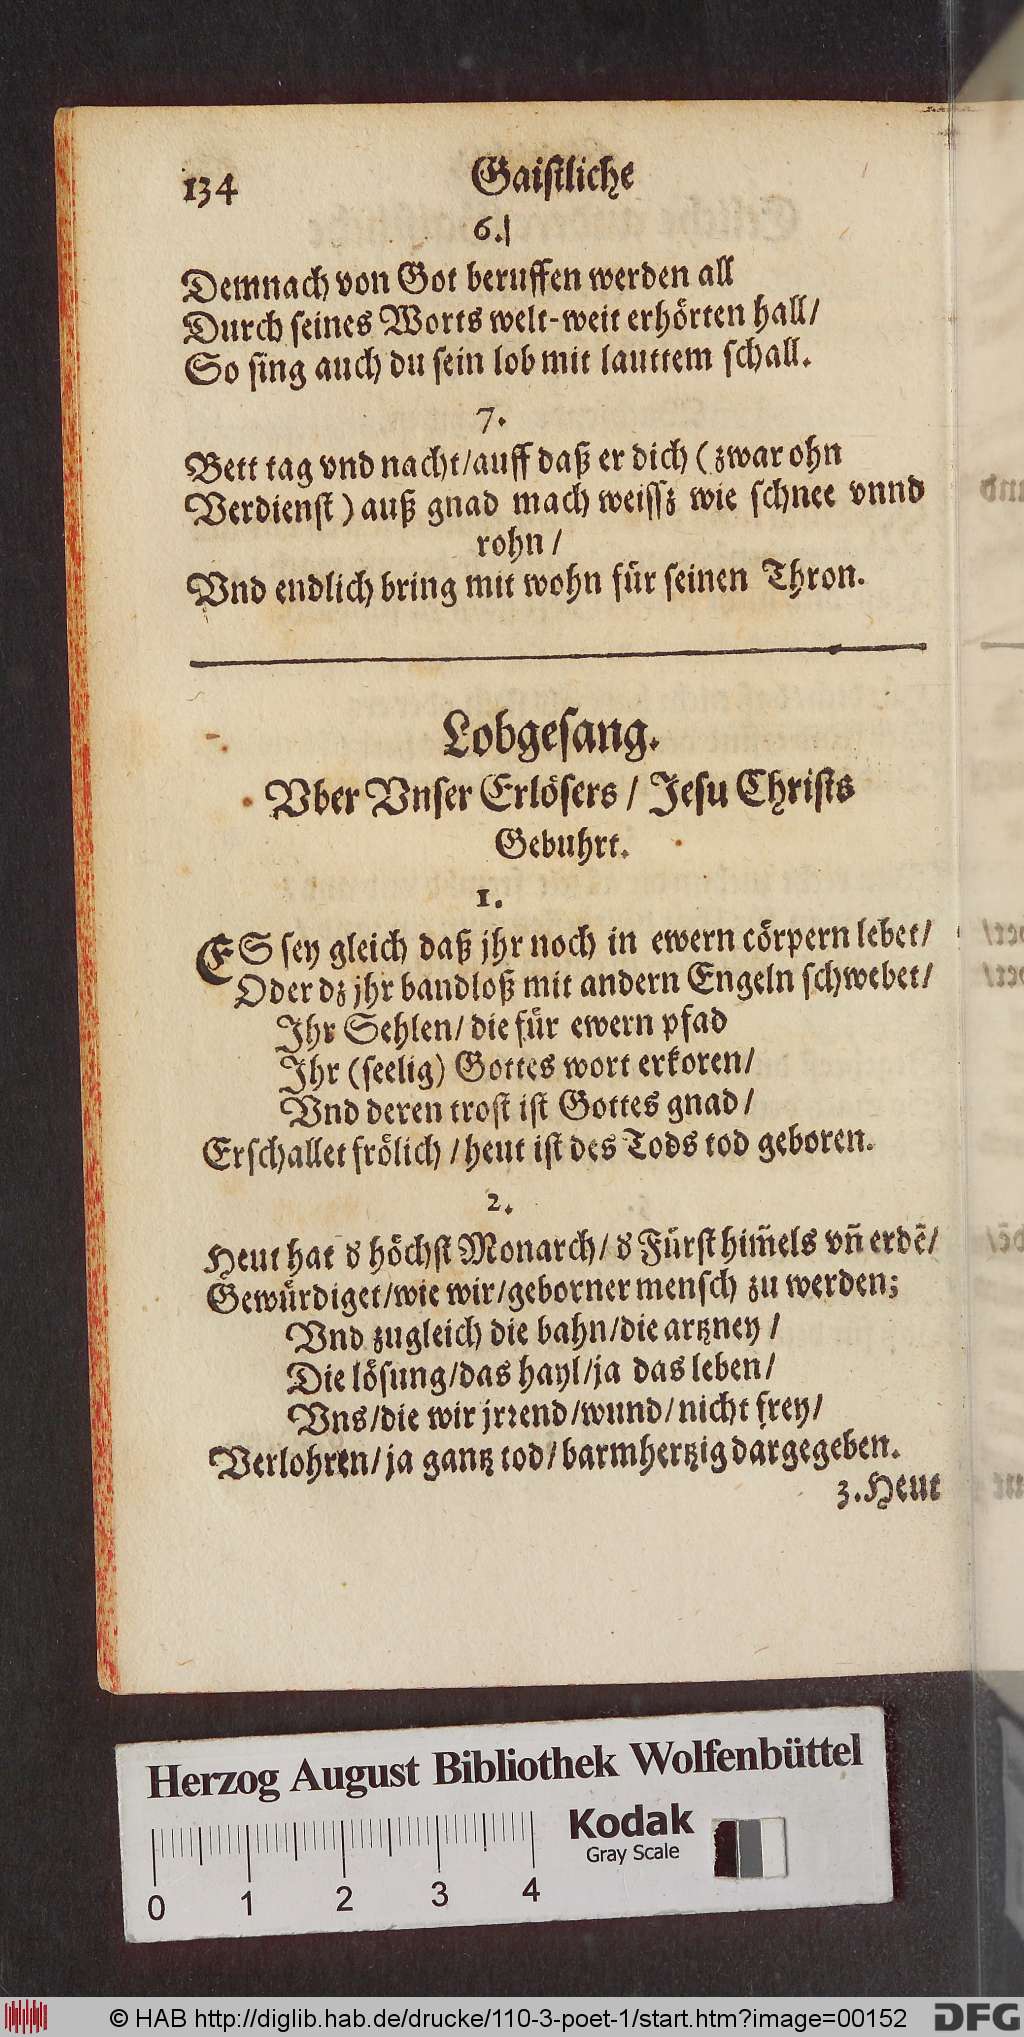 134 Gaistliche
6.
Demnach von Got beruffen werden all
Durch seines Worts welt-weit erhörten hall/
So sing auch du sein lob mit lauttem schall.
7.
Bett tag vnd nacht/auff daß er dich (zwar ohn
Verdienst) auß gnad mach weissz wie schnee vnnd
rohn/
Vnd endlich bring mit wohn für seinen Thron.
Lobgesang.
Vber Vnser Erlösers/ Jesu Christs
Gebuhrt.
1.
ES sey gleich daß jhr noch in ewern cörpern lebet/
Oder dz jhr bandloß mit andern Engeln schwebet/
Ihr Sehlen/ die für ewern pfad
Ihr (seelig) Gottes wort erkoren/
Vnd deren trost ist Gottes gnad/
Erschallet frölich/heut ist des Tods tod geboren.
2.
Heut hat d höchst Monarch/ d Fürst him̃els vñ erdẽ/
Gewürdiget/wie wir/geborner mensch zu werden;
Vnd zugleich die bahn/die artzney/
Die lösung/das hayl/ja das leben/
Vns/die wir jrrend/wund/nicht frey/
Verlohren/ja gantz tod/barmhertzig dargegeben.
3.Heut
Herzog August Bibliothek Wolfenbüttel
Kodak
Gray Scale
0 1 2 3 4
© HAB http://diglib.hab.de/drucke/110-3-poet-1/start.htm?image=00152
DFG